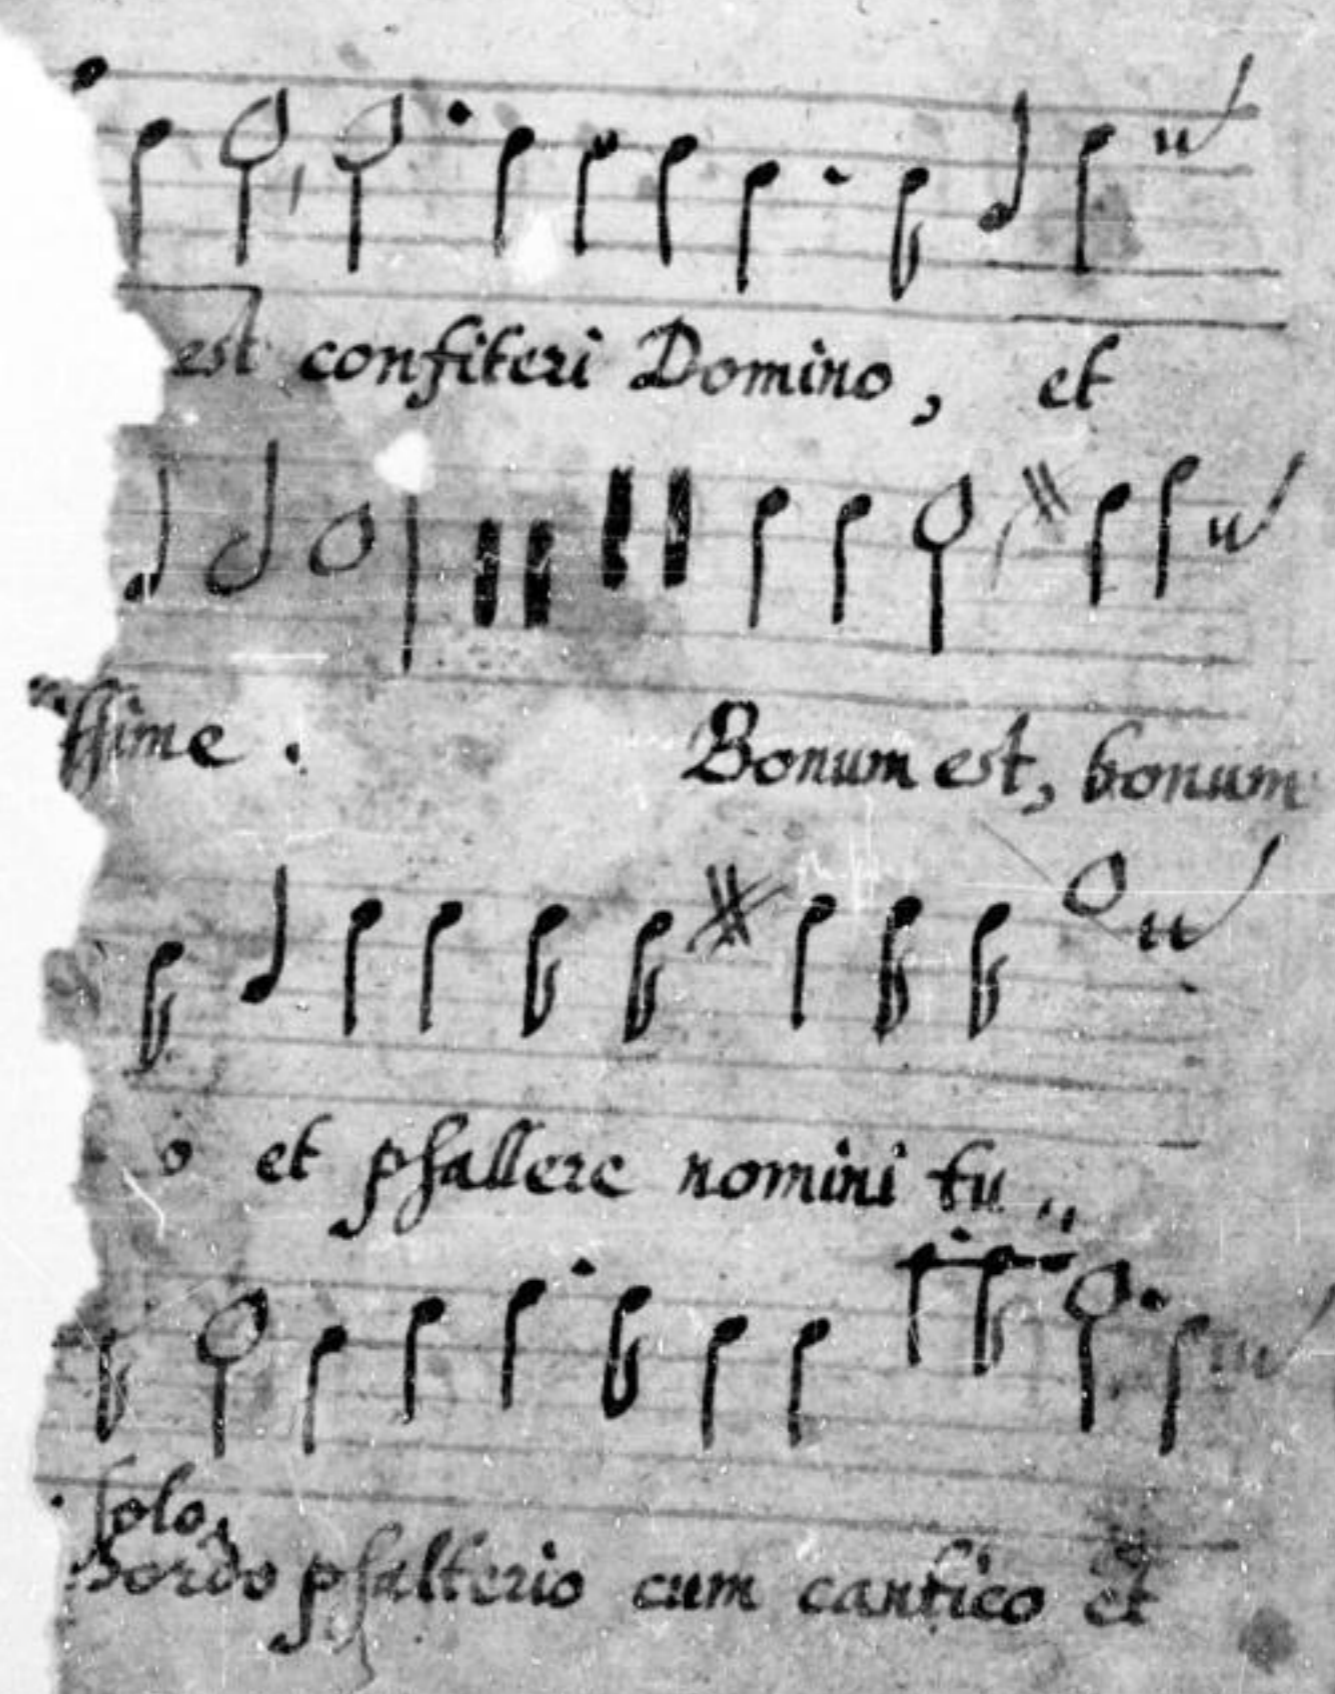 est confiteri Domino, et
ſſime. Bonum est, bonum
o et pſallere nomini tu,,
ſolo
pſalterio cum cantico et